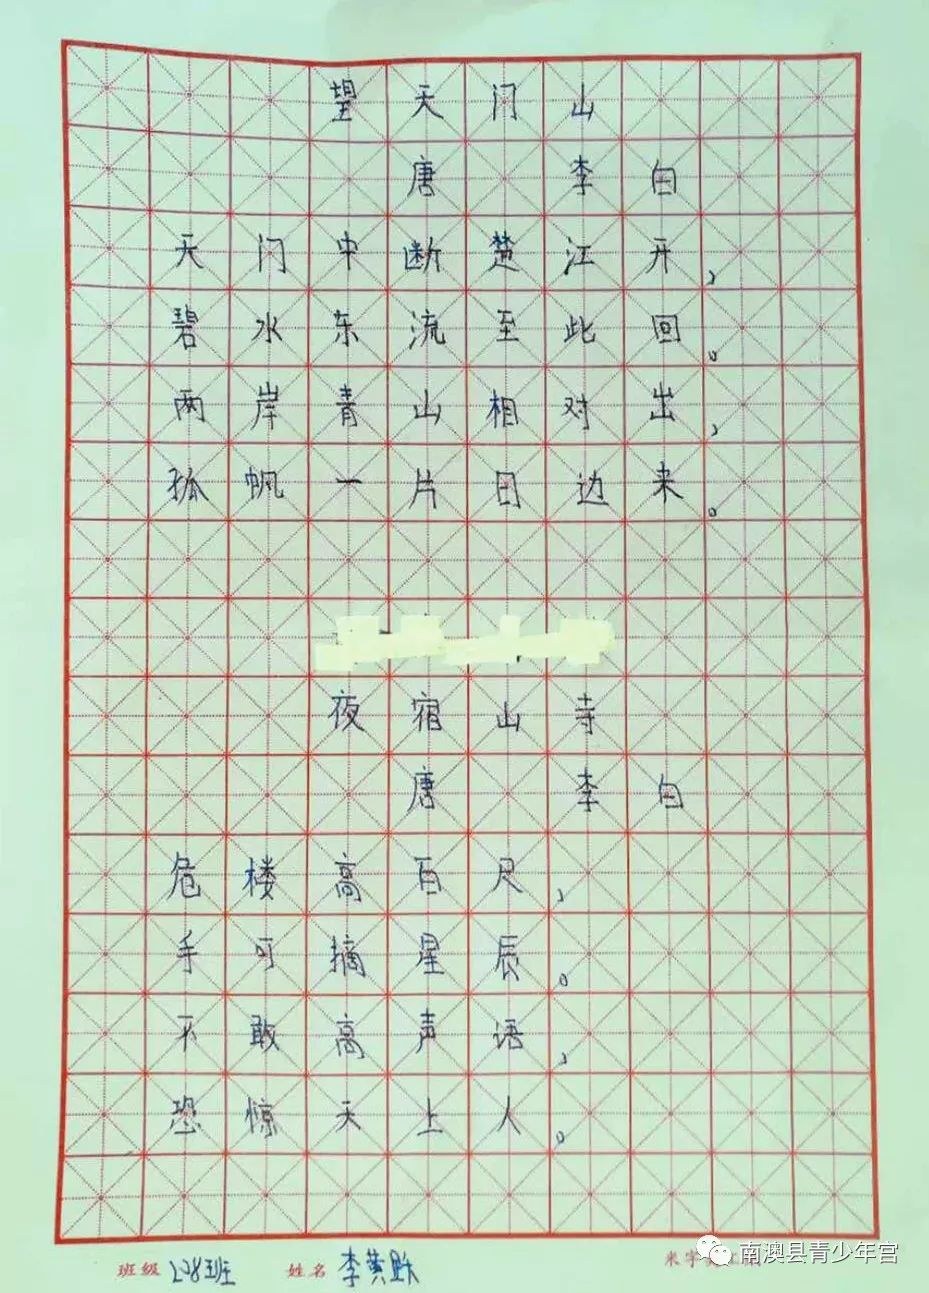 望天门山
唐 李白
天门中断楚江开，
碧水东流至此回。
两岸青山相对出，
孤帆一片日边来。
夜宿山寺
唐 李白
危楼高百尺，
手可摘星辰。
不敢高声语，
恐惊天上人。
班级 姓名 李黄 米字
南澳县青少年宫